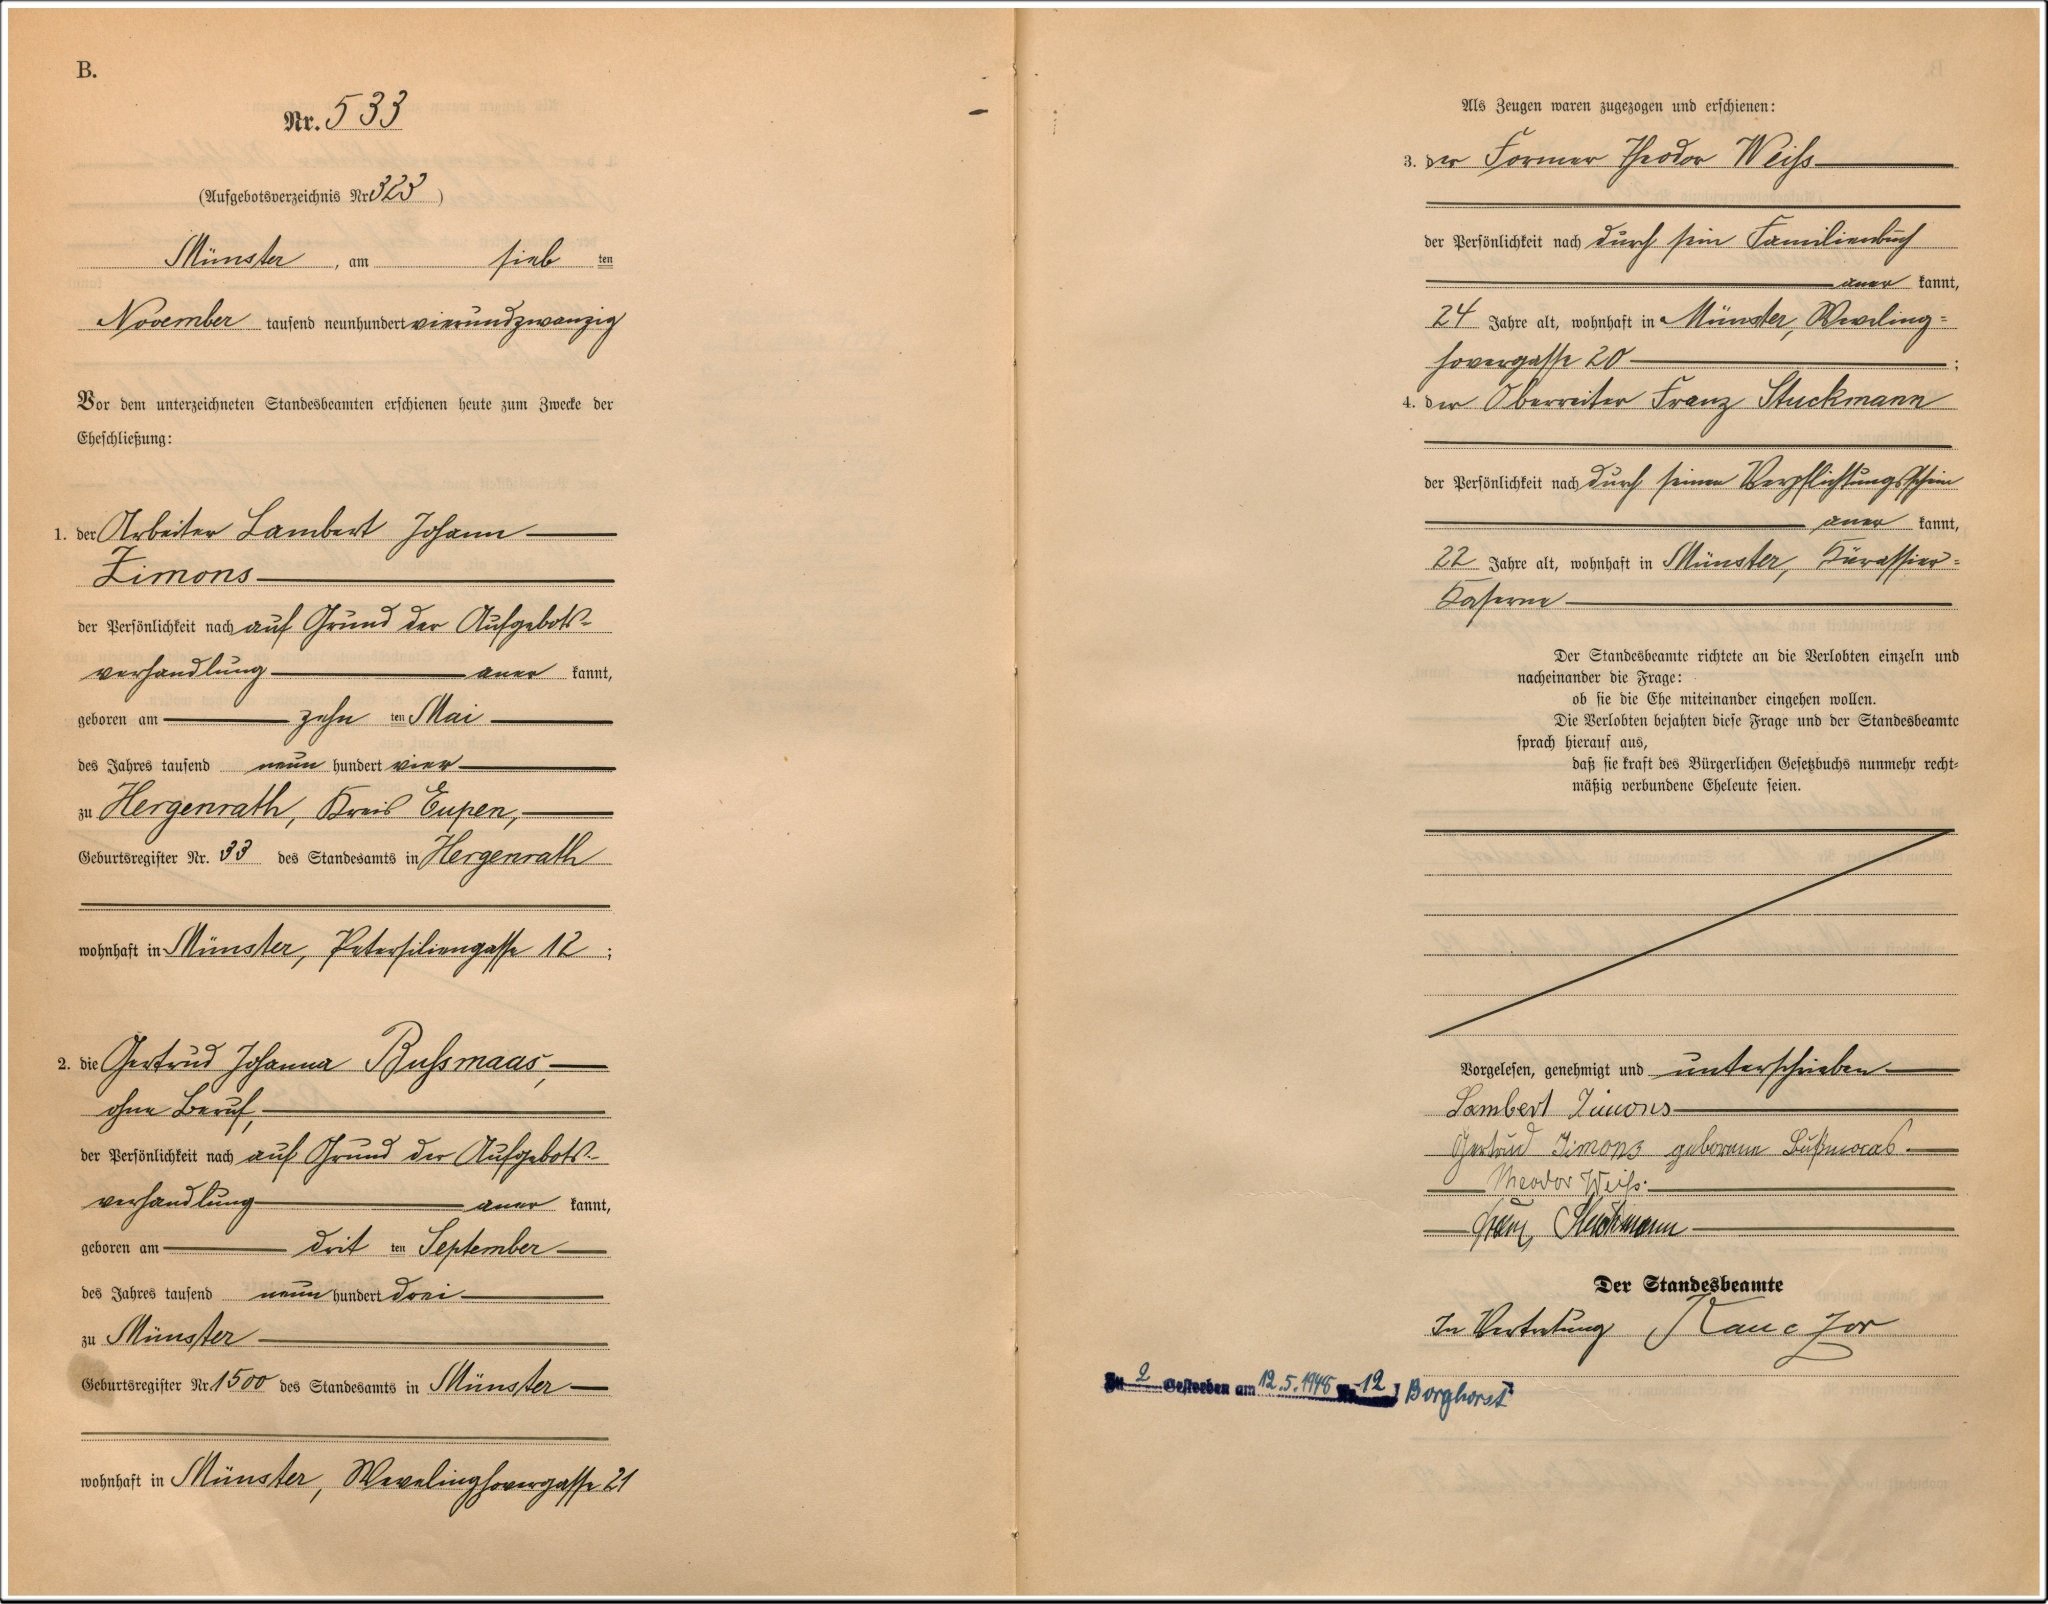 B.
Nr. 533
(Aufgebotsverzeichnis Nr 323 )
Münster , am sieb ten
November tausend neunhundert vierundzwanzig
Vor dem unterzeichneten Standesbeamten erschienen heute zum Zwecke der
Eheschließung:
1. der Arbeiter Lambert Johann
Zimons
der Persönlichkeit nach auf Grund der Aufgebots-
verhandlung aner kannt,
geboren am zehn ten Mai
des Jahres tausend neun hundert vier
zu Hergenrath, Kreis Eupen,
Geburtsregister Nr. 33 des Standesamts in Hergenrath
wohnhaft in Münster, Petersiliengasse 12 ;
2. die Gertrud Johanna Bußmaas,
ohne Beruf,
der Persönlichkeit nach auf Grund der Aufgebots-
verhandlung aner kannt,
geboren am drit ten September
des Jahres tausend neun hundert drei
zu Münster
Geburtsregister Nr 1500 des Standesamts in Münster
wohnhaft in Münster, Wevelinghovergasse 21
Als Zeugen waren zugezogen und erschienen:
3. der Former Theodor Weiß
der Persönlichkeit nach durch sein Familienbuch
aner kannt,
24 Jahre alt, wohnhaft in Münster, Weveling=
hovergasse 20 ;
4. der Oberreiter Franz Stuckmann
der Persönlichkeit nach durch seinen Verpflichtungsschein
aner kannt,
22 Jahre alt, wohnhaft in Münster, Kürassier=
Kaserne
Der Standesbeamte richtete an die Verlobten einzeln und
nacheinander die Frage:
ob sie die Ehe miteinander eingehen wollen.
Die Verlobten bejahten diese Frage und der Standesbeamte
sprach hierauf aus,
daß sie kraft des Bürgerlichen Gesetzbuchs nunmehr recht=
mäßig verbundene Eheleute seien.
Vorgelesen, genehmigt und unterschrieben
Lambert Zimons
Gertrud Zimons geborene Bußmaas
Theodor Weiß.
Franz Stuckmann
Der Standesbeamte
In Vertretung
Zu 2 Gestorben am 12.5.1948 Nr. 12 Borghorst